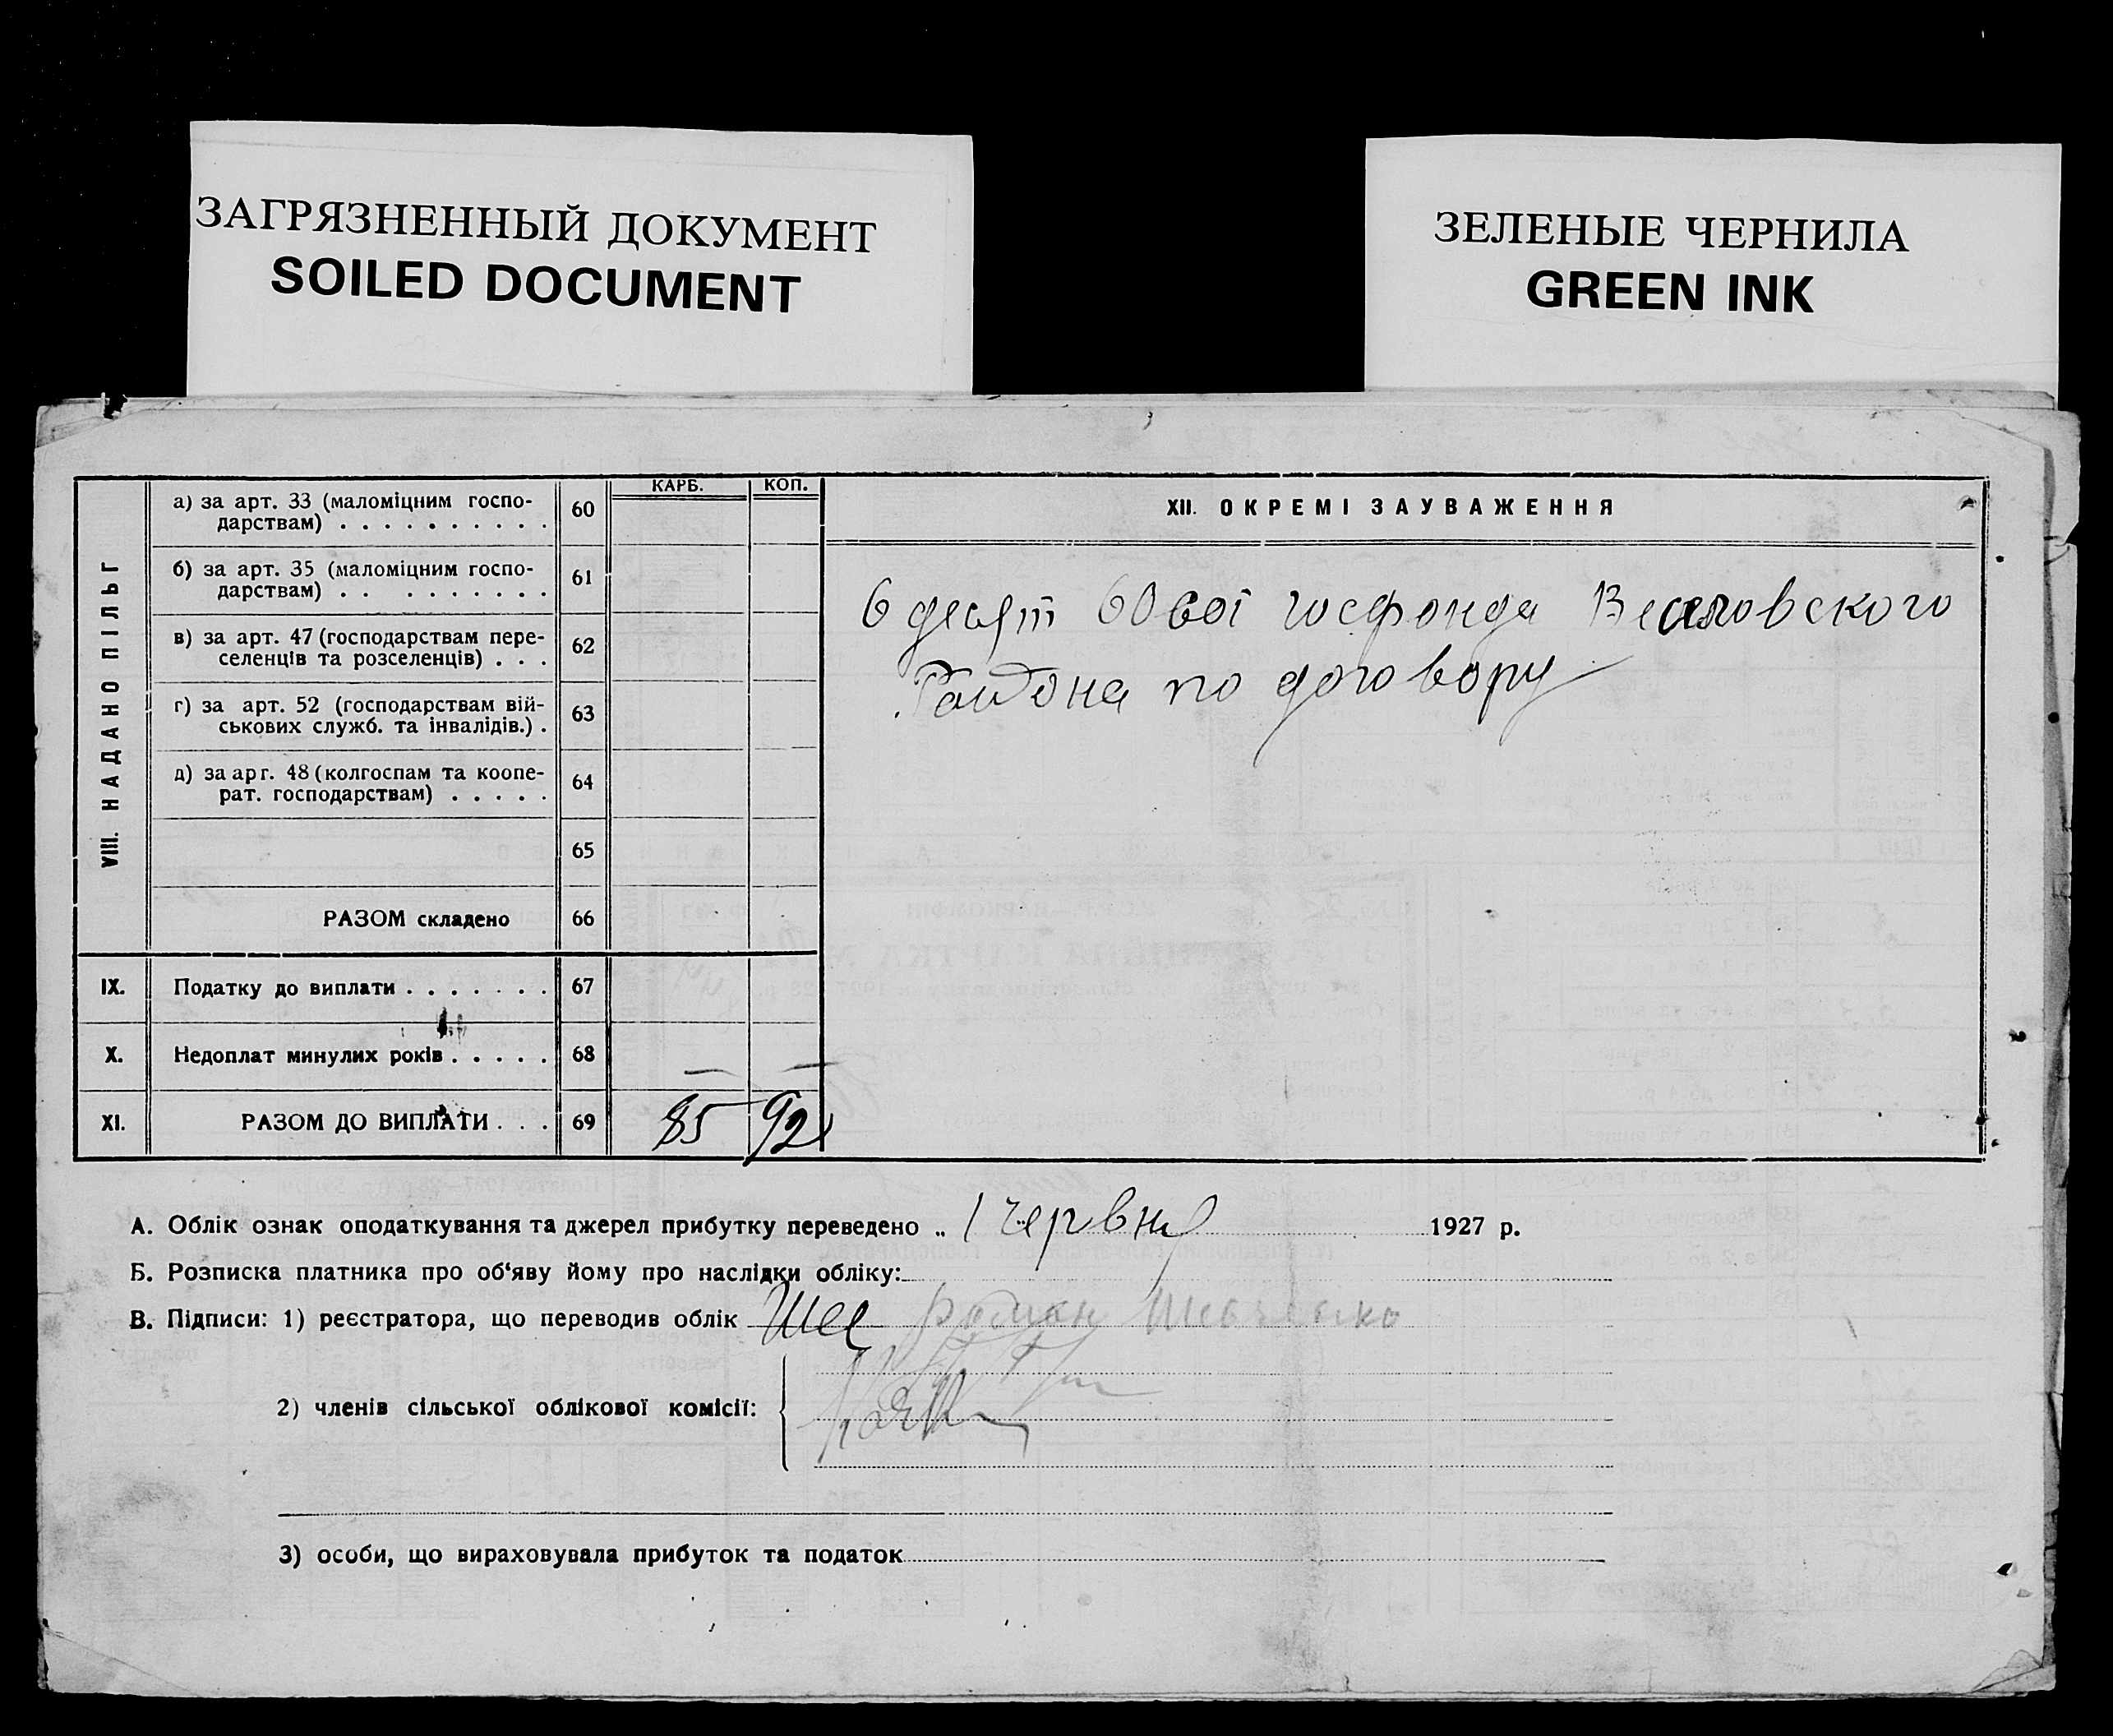 ЗАГРЯЗНЕННЫЙ ДОКУМЕНТ
SOILED DOCUMENT
ЗЕЛЕНЫЕ ЧЕРНИЛА
GREEN INK
VIII. НАДАНО ПІЛЬГ
КАРБ. КОП.
а) за арт. 33 (маломіцним госпо-
дарствам) . . . . . . . . . . 60
б) за арт. 35 (маломіцним госпо-
дарствам) . . . . . . . . . 61
в) за арт. 47 (господарствам пере-
селенців та розселенців) . . . 62
г) за арт. 52 (господарствам вій-
ськових служб. та інвалідів.) . 63
д) за арг. 48 (колгоспам та коопе-
рат. господарствам) . . . . . 64
65
РАЗОМ складено 66
IX. Податку до виплати . . . . . . . 67
X. Недоплат минулих років . . . . . 68 — —
XI. РАЗОМ ДО ВИПЛАТИ . . . 69 85 92
XII. ОКРЕМІ ЗАУВАЖЕННЯ
6 десят 60 сот госфонда Веселовского
Района по договору
А. Облік ознак оподаткування та джерел прибутку переведено „ 1 червня 1927 р.
Б. Розписка платника про об‘яву йому про наслідки обліку:
В. Підписи: 1) реєстратора, що переводив облік Роман Шевченко
2) членів сільської облікової комісії:
3) особи, що вираховувала прибуток та податок